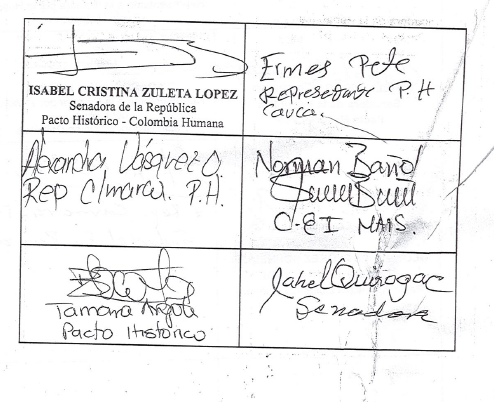 ISABEL CRISTINA ZULETA LOPEZ
Senadora de la República
Pacto Histórico - Colombia Humana
Ermes Pete
Representante P.H
Cauca.
Alexandra Vásquez O.
Rep C/marca. P.H.
Norman Bañol
C.EI MAIS.
Tamara Argote
Pacto Histórico
Jahel Quiroga C
Senadora